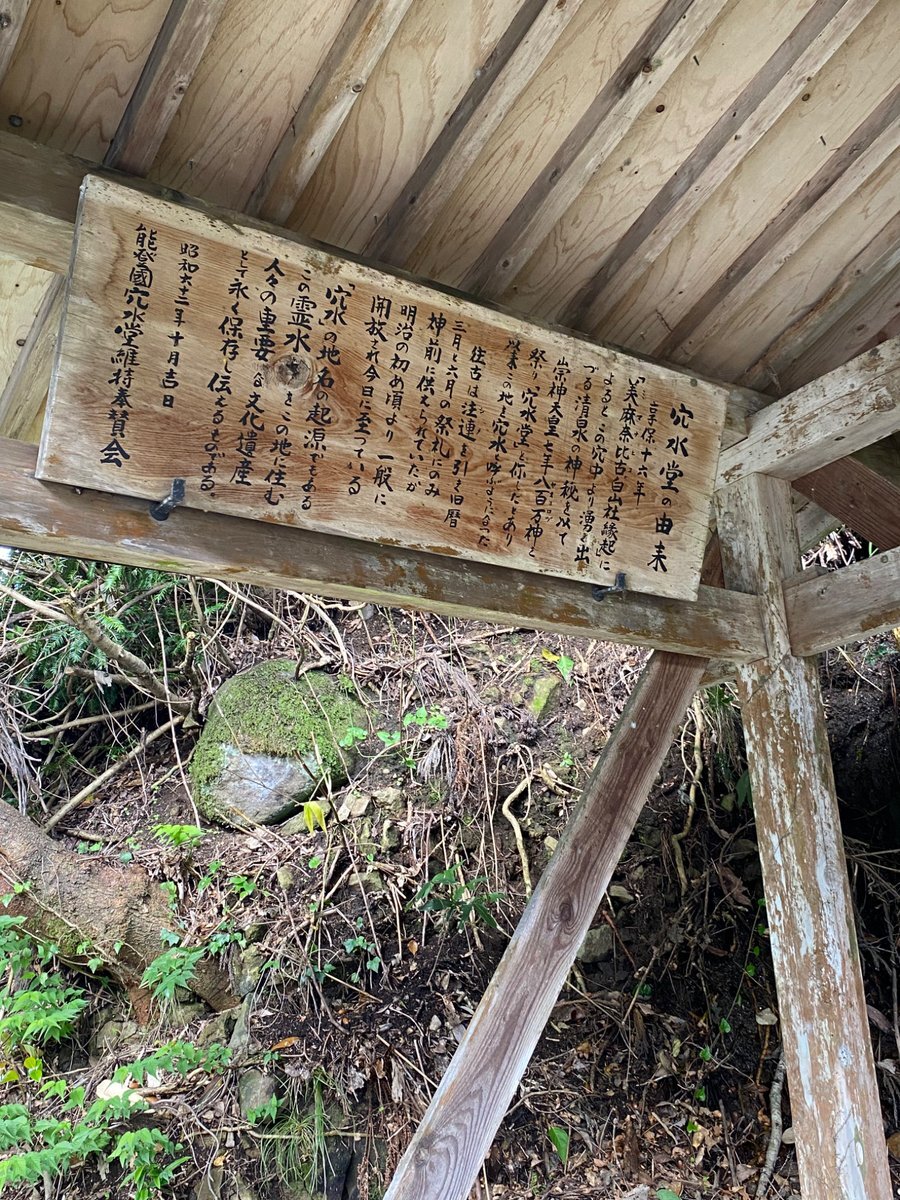 穴水堂の由来
享保十六年
「美麻奈比古白山社縁起」に
よると この穴中より湧き出
づる清泉の神秘を以て
崇神天皇七年八百万神を
祭り「穴水堂」と称したとあり
以来この地を穴水と呼ぶようになった
往古は注連を引き旧暦
三月と六月の祭礼にのみ
神前に供えられていたが
明治の初め頃より一般に
開放され今日に至っている
「穴水」の地名の起源でもある
この霊水をこの地に住む
人々の重要な文化遺産
として永く保存し伝えるものである。
昭和六十二年十月吉日
能登國穴水堂維持奉賛会